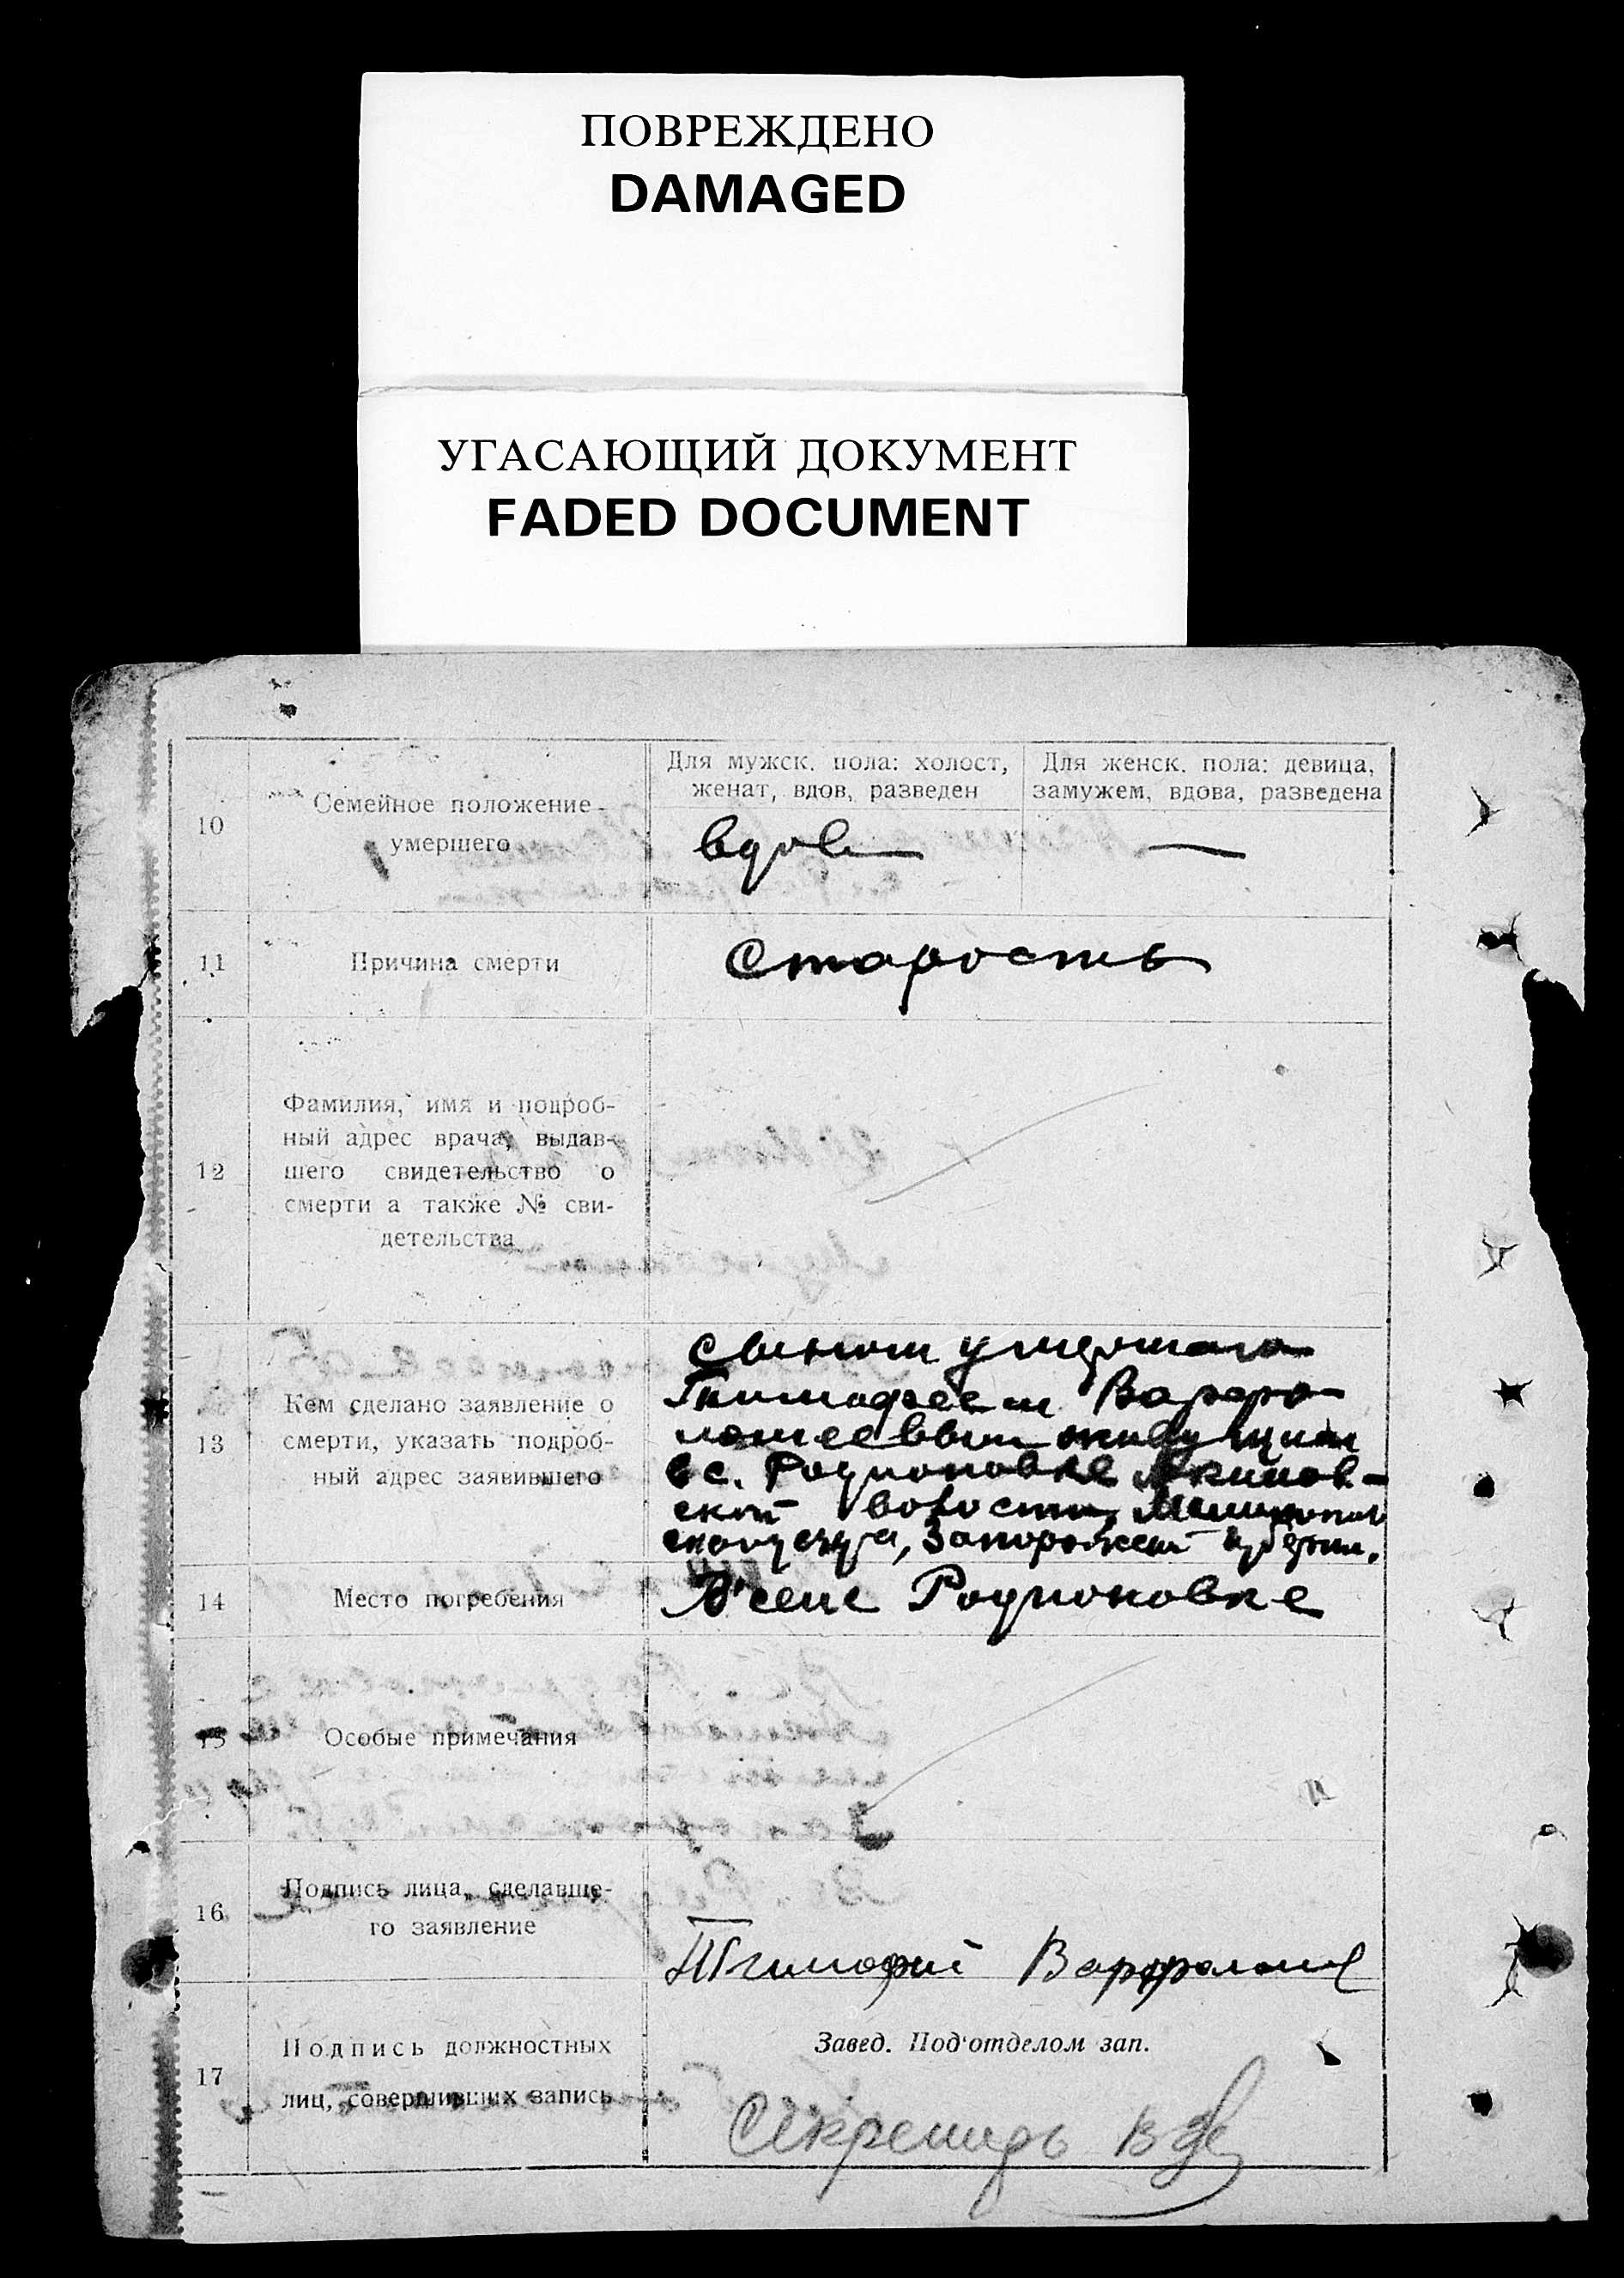 ПОВРЕЖДЕНО
DAMAGED
УГАСАЮЩИЙ ДОКУМЕНТ
FADED DOCUMENT
Для мужск. пола: холост,
женат, вдов, разведен
Для женск. пола: девица,
замужем, вдова, разведена
10
Семейное положение
умершего
вдов
—
11
Причина смерти
Старость
12
Фамилия, имя и подроб-
ный адрес врача, выдав-
шего свидетельство о
смерти а также № сви-
детельства
13
Кем сделано заявление о
смерти, указать подроб-
ный адрес заявившего
Сыном умершаго
Тимофеем Варфо-
ломеевым живущим
в с. Родионовке Акимов-
ской волости, Мелитополь
скаго уезда, Запорожской губернии.
14
Место погребения
В селе Родионовке
15
Особые примечания
16
Подпись лица, сделавше-
го заявление
Тимофий Варфоломе
17
Подпись должностных
лиц, совершивших запись
Завед. Под'отделом зап.
Секретарь